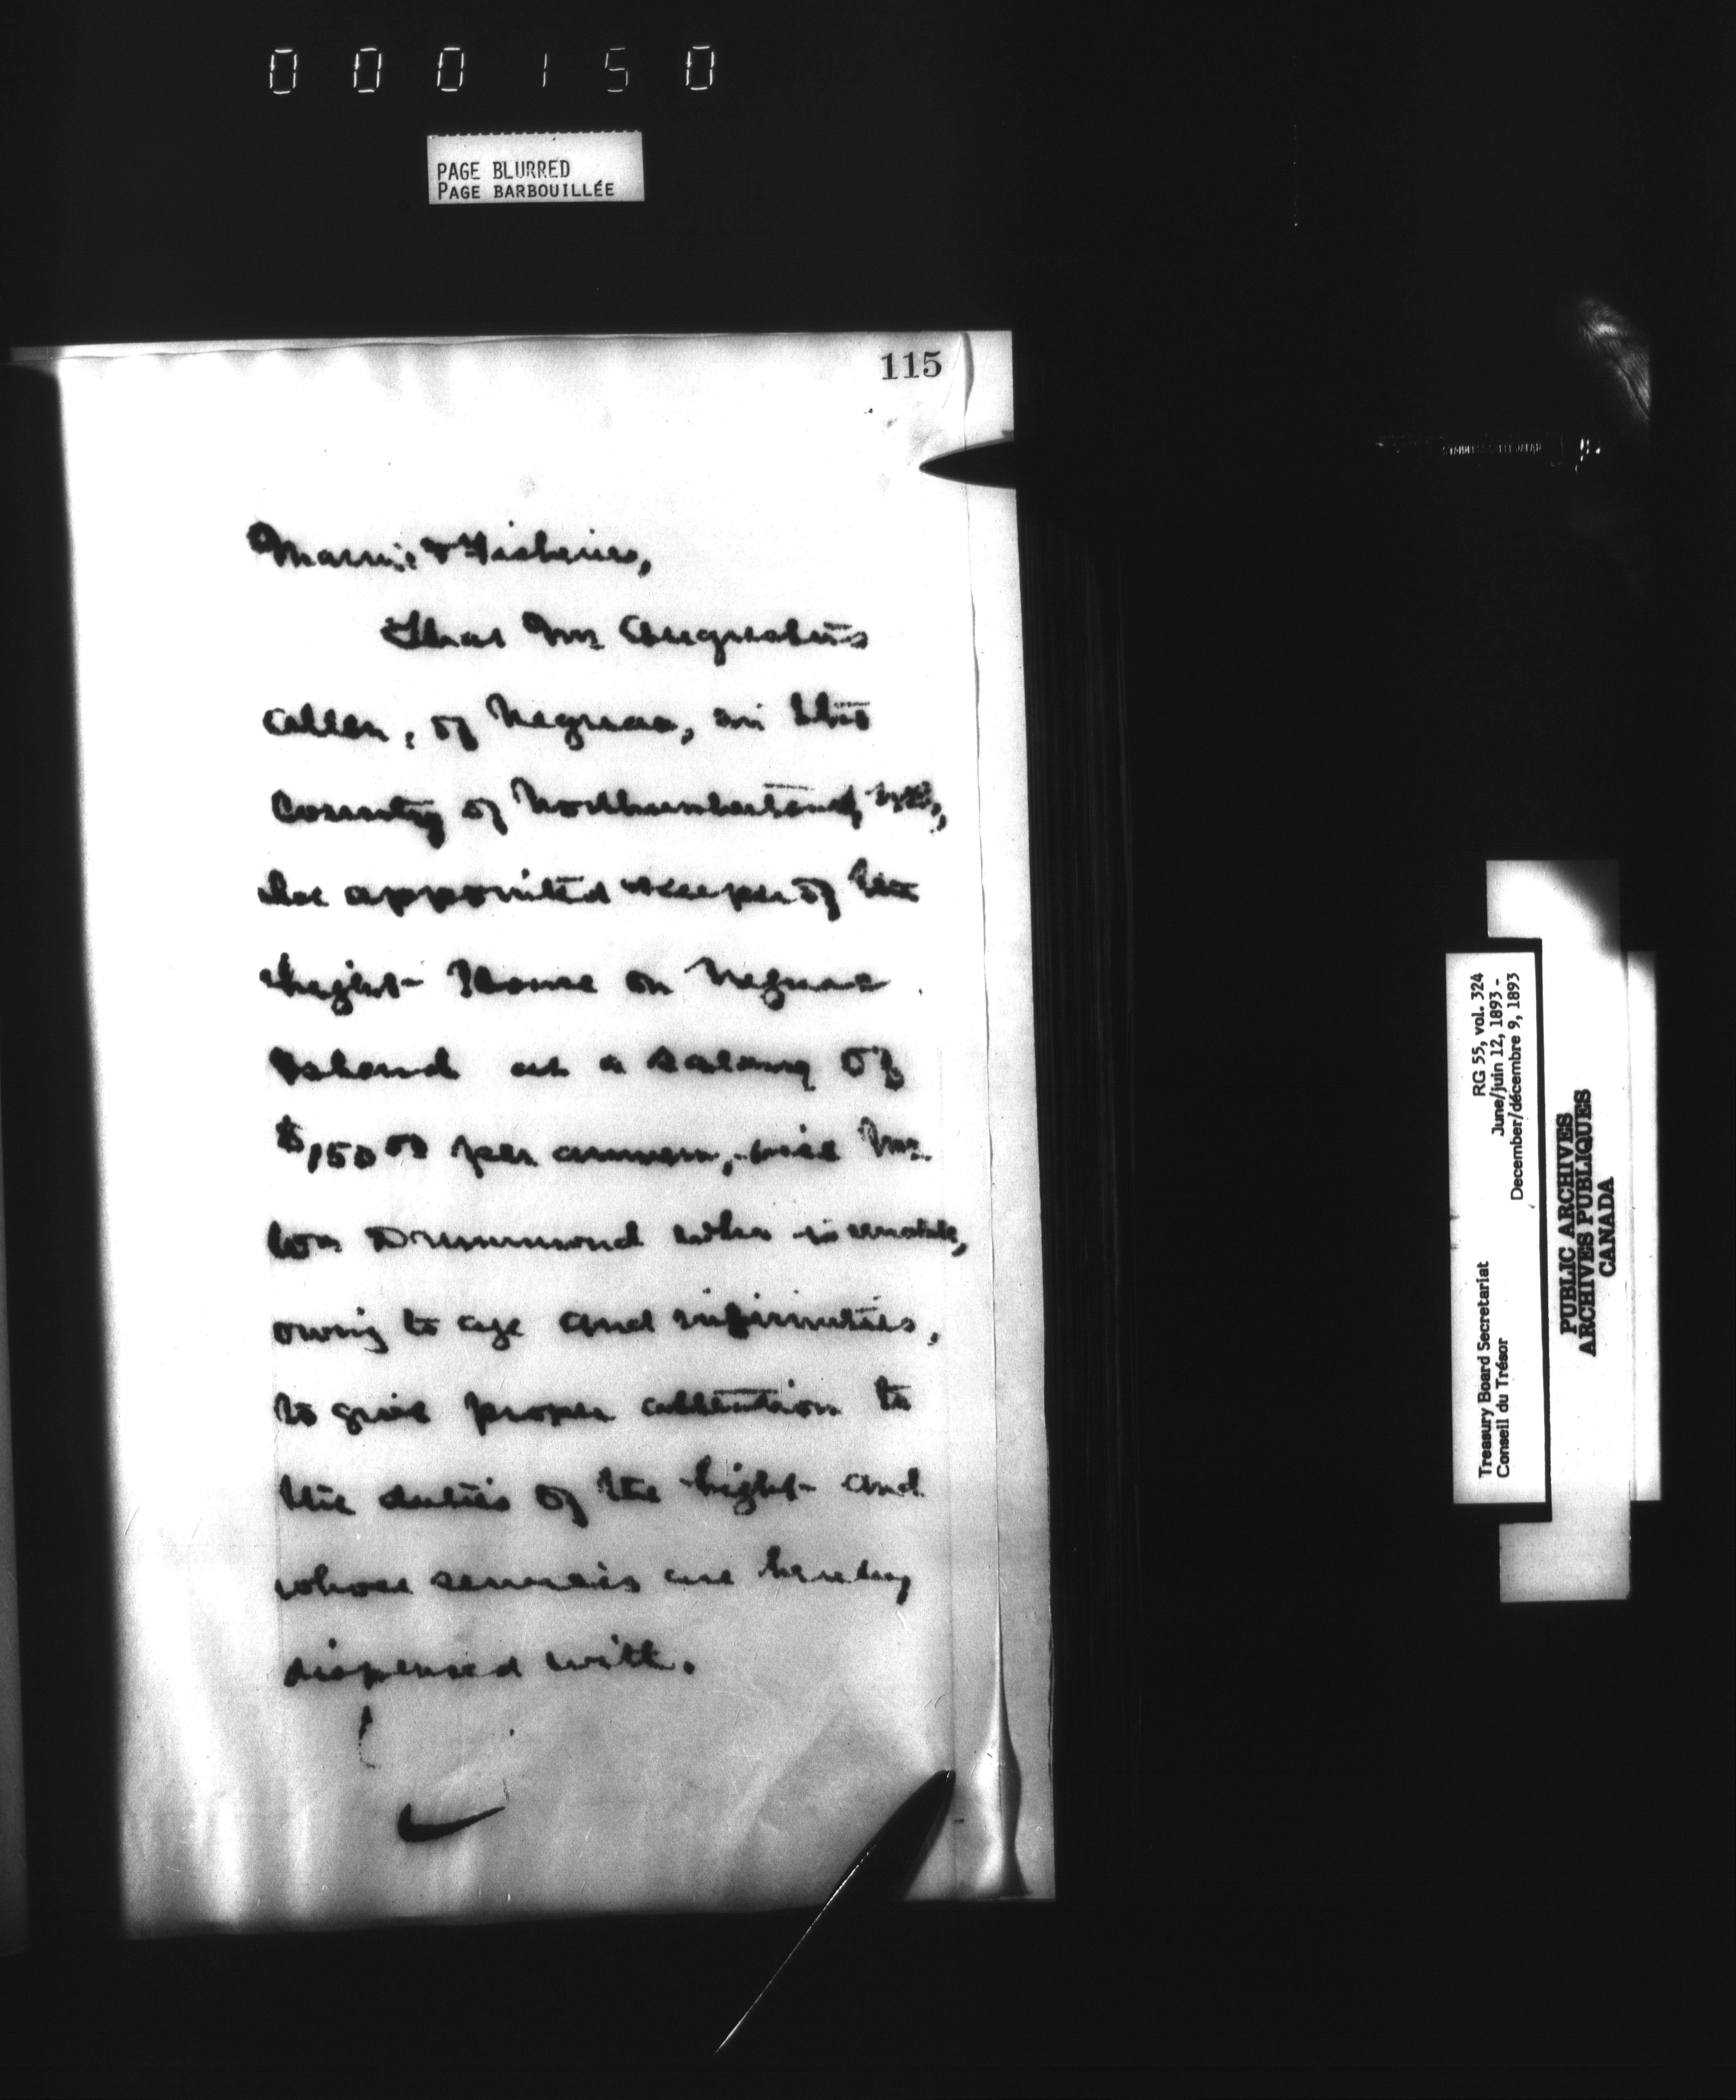 000150
PAGE BLURRED
PAGE BARBOUILLÉE
115
Marine & Fisheries,
That Mr Augustus
Allen, of Neguac, in the
County of Northumberland, N.B.,
be appointed Keeper of the
Light House on Neguac
Island at a salary of
$150.00 per annum, vice Mr.
Wm Drummond who is unable,
owing to age and infirmities,
to give proper attention to
the duties of the light and
whose services are hereby
dispensed with.
Treasury Board Secretariat
Conseil du Trésor
RG 55, vol. 324
June/juin 12, 1893 -
December/décembre 9, 1893
PUBLIC ARCHIVES
ARCHIVES PUBLIQUES
CANADA